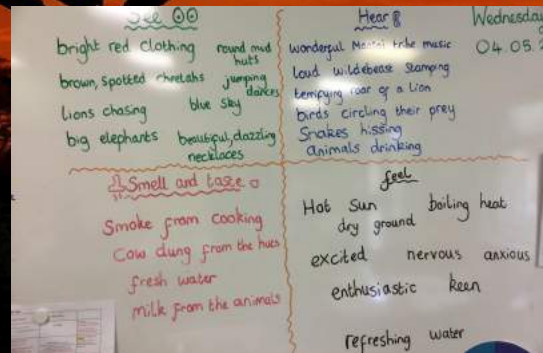 See
bright red clothing round mud huts
brown, spotted cheetahs jumping dances
lions chasing blue sky
big elephants beautiful, dazzling necklaces
Hear
wonderful Maasai tribe music
loud wildebease stamping
terrifying roar of a lion
birds circling their prey
Snakes hissing
animals drinking
Wednesday
04.05.2
Smell and taste
Smoke from cooking
Cow dung from the huts
fresh water
milk from the animals
feel
Hot Sun boiling heat
dry ground
excited nervous anxious
enthusiastic keen
refreshing water